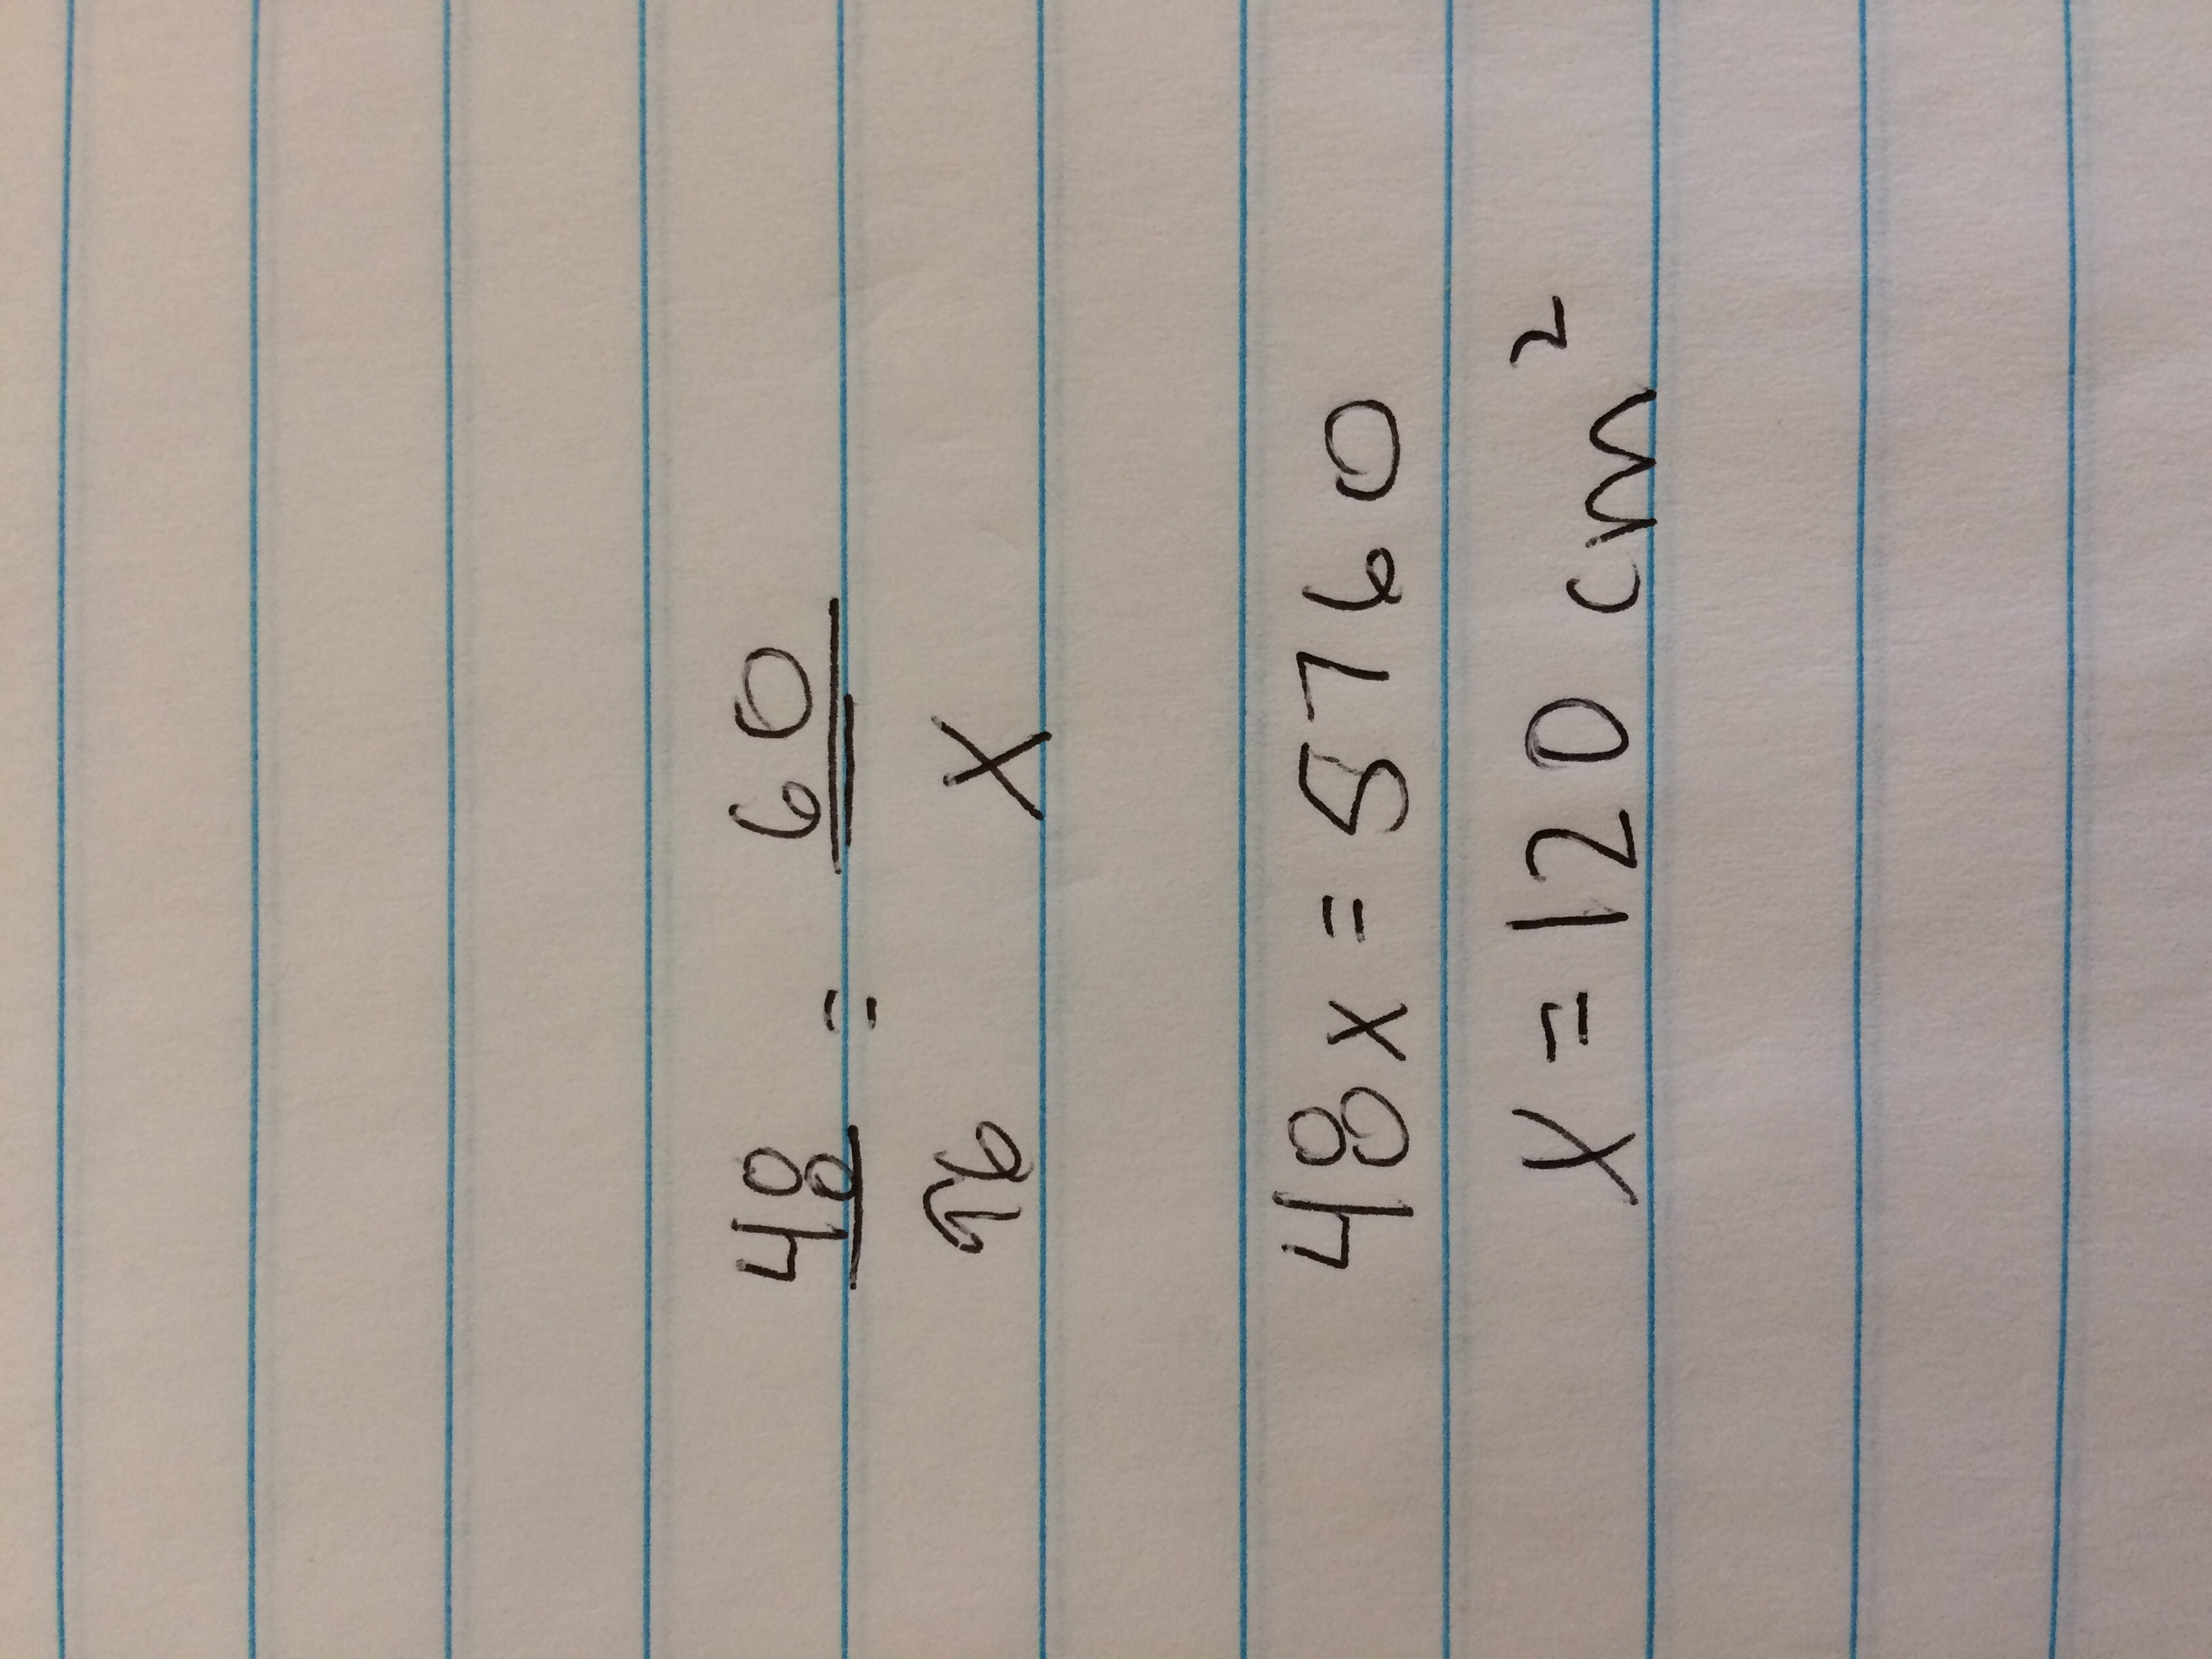 48 = 60
96 x
48x = 5760
x = 120 cm²